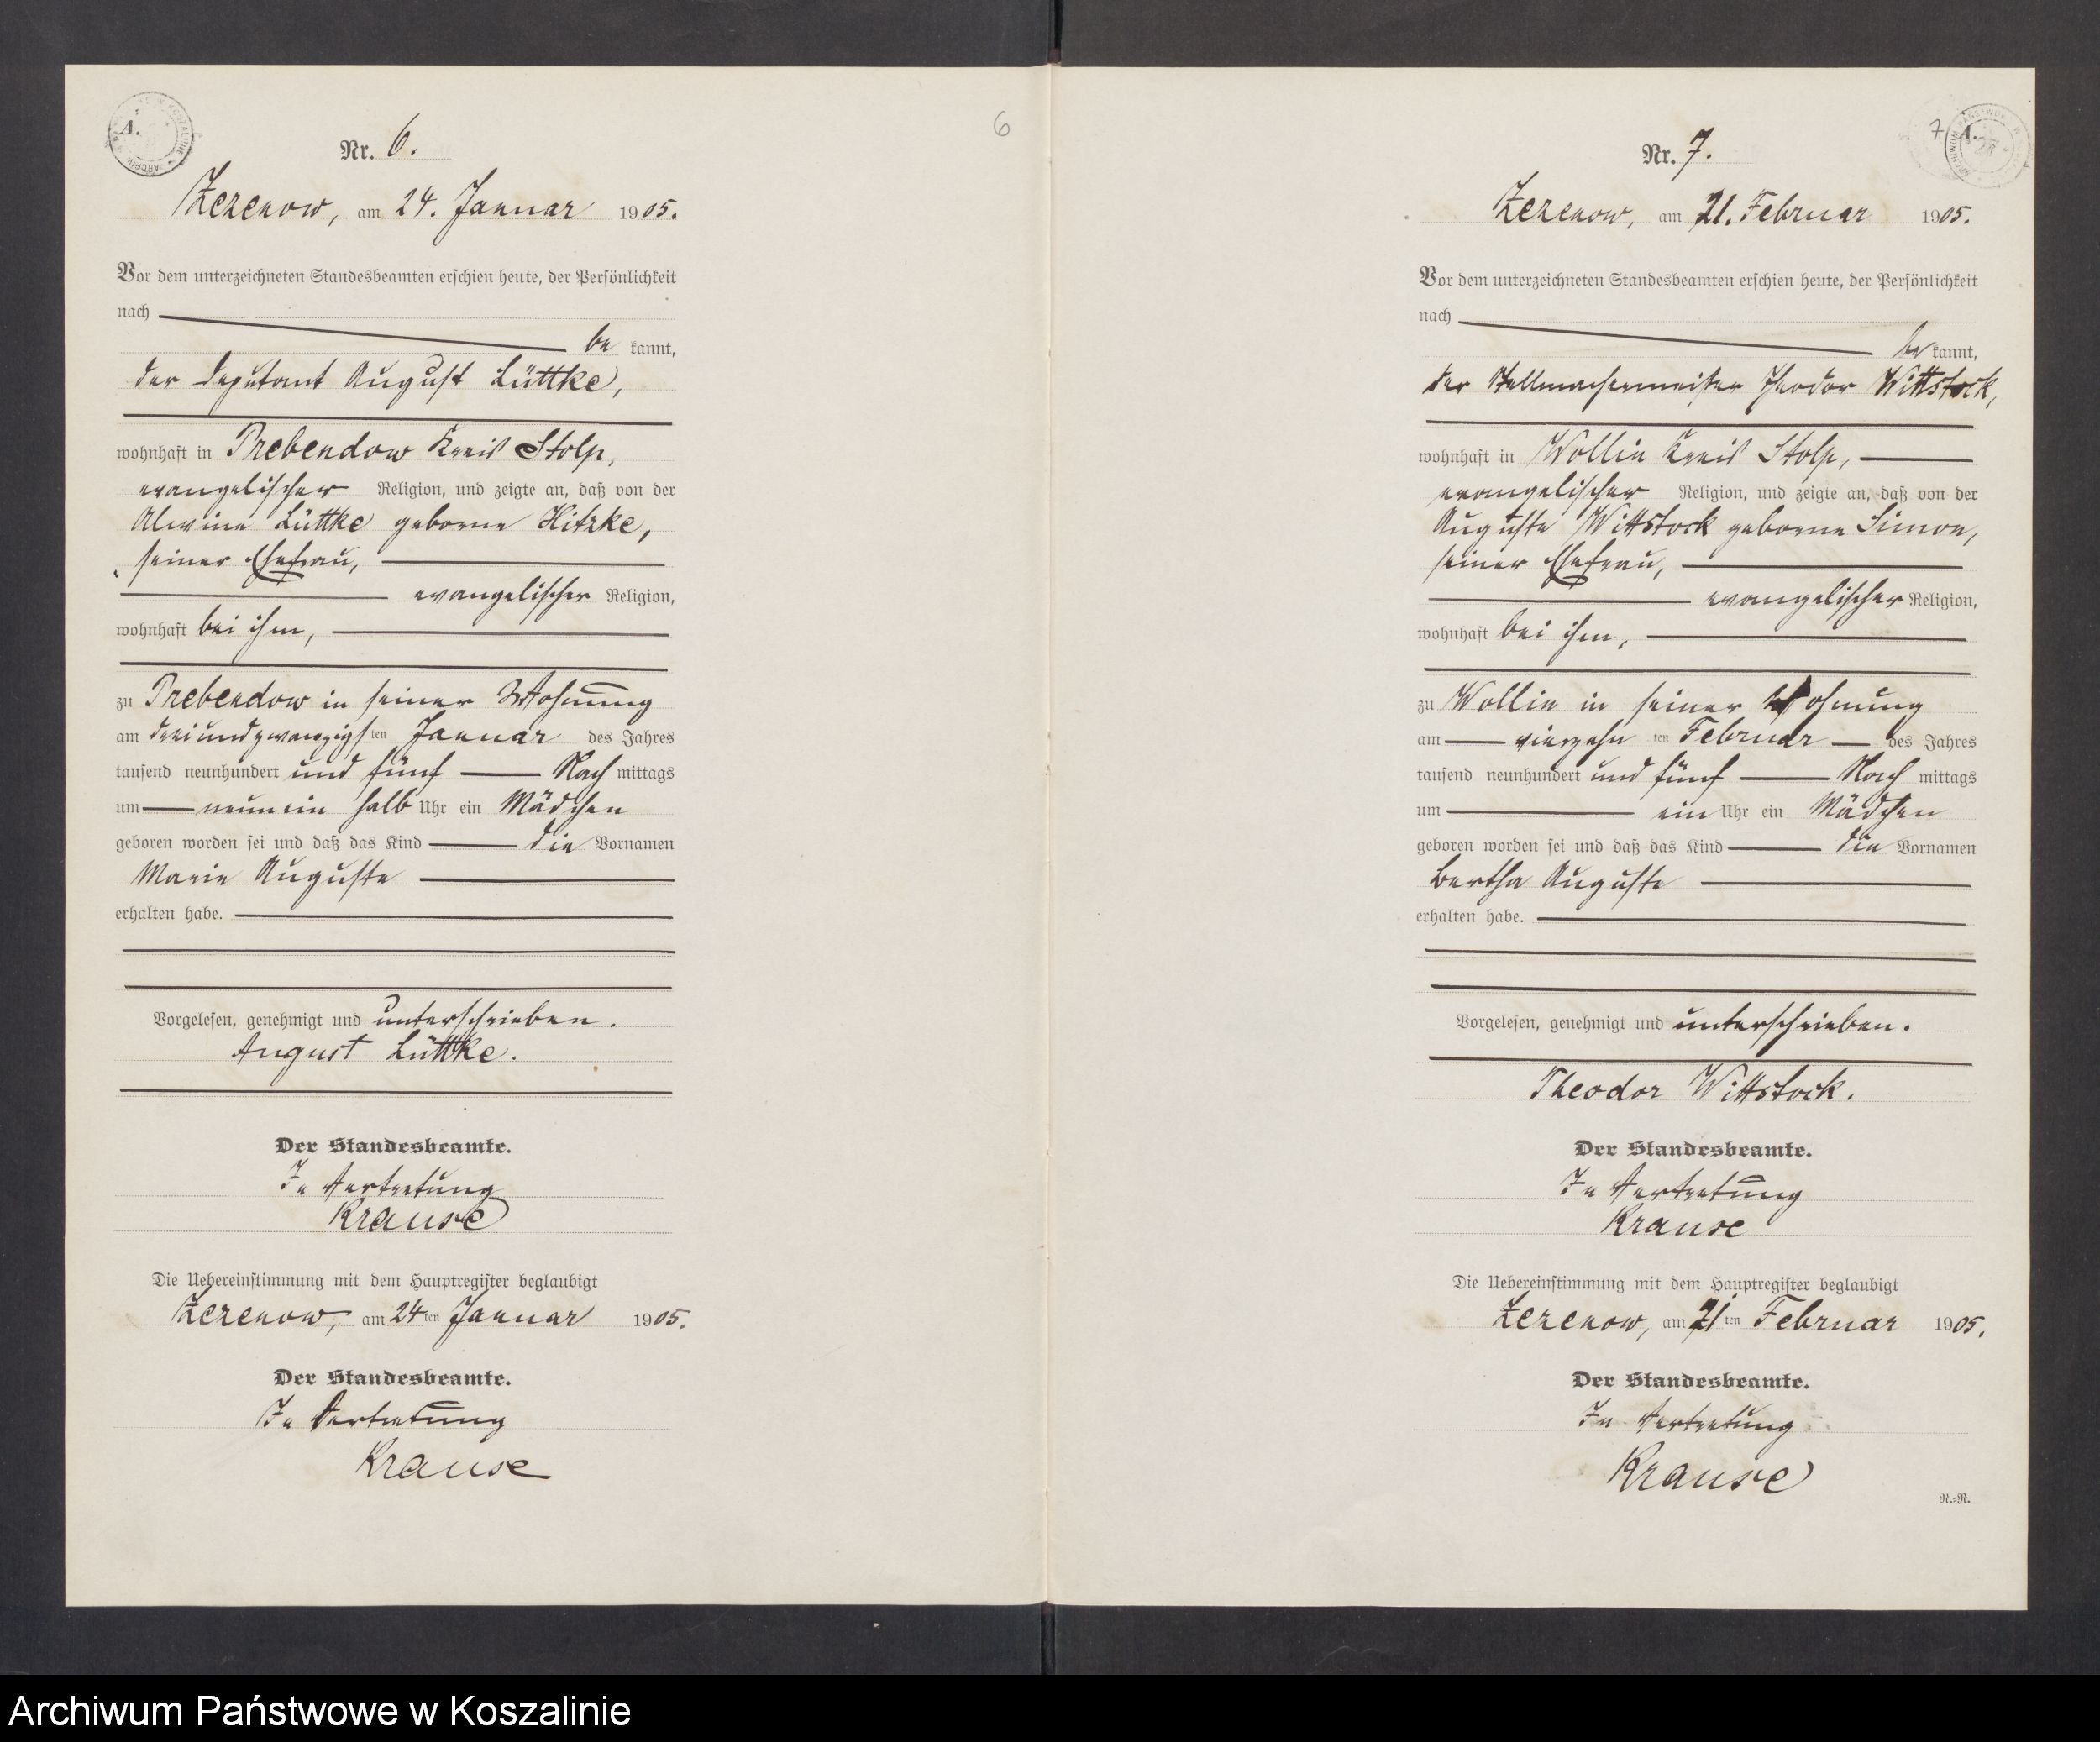 A.
Nr. 6.
Zezenow, am 24. Januar 1905.
Vor dem unterzeichneten Standesbeamten erschien heute, der Persönlichkeit
nach
be kannt,
der Deputant August Lüttke,
wohnhaft in Prebendow Kreis Stolp,
evangelischer Religion, und zeigte an, daß von der
Alwine Lüttke geborne Hitzke,
seiner Ehefrau,
evangelischer Religion,
wohnhaft bei ihm,
zu Prebendow in seiner Wohnung
am dreiundzwanzigsten Januar des Jahres
tausend neunhundert und fünf Nach mittags
um neunein halb Uhr ein Mädchen
geboren worden sei und daß das Kind die Vornamen
Marie Auguste
erhalten habe.
Vorgelesen, genehmigt und unterschrieben.
August Lüttke.
Der Standesbeamte.
In Vertretung
Krause
Die Uebereinstimmung mit dem Hauptregister beglaubigt
Zezenow, am 24ten Januar 1905.
Der Standesbeamte.
In Vertretung
Krause
6
7
A.
Nr. 7.
Zezenow, am 21. Februar 1905.
Vor dem unterzeichneten Standesbeamten erschien heute, der Persönlichkeit
nach
be kannt,
der Stellmachermeister Theodor Wittstock,
wohnhaft in Wollin Kreis Stolp,
evangelischer Religion, und zeigte an, daß von der
Auguste Wittstock geborne Simon,
seiner Ehefrau,
evangelischer Religion,
wohnhaft bei ihm,
zu Wollin in seiner Wohnung
am vierzehn ten Februar des Jahres
tausend neunhundert und fünf Nach mittags
um ein Uhr ein Mädchen
geboren worden sei und daß das Kind die Vornamen
Bertha Auguste
erhalten habe.
Vorgelesen, genehmigt und unterschrieben.
Theodor Wittstock.
Der Standesbeamte.
In Vertretung
Krause
Die Uebereinstimmung mit dem Hauptregister beglaubigt
Zezenow, am 21ten Februar 1905.
Der Standesbeamte.
In Vertretung
Krause
R.=R.
Archiwum Państwowe w Koszalinie